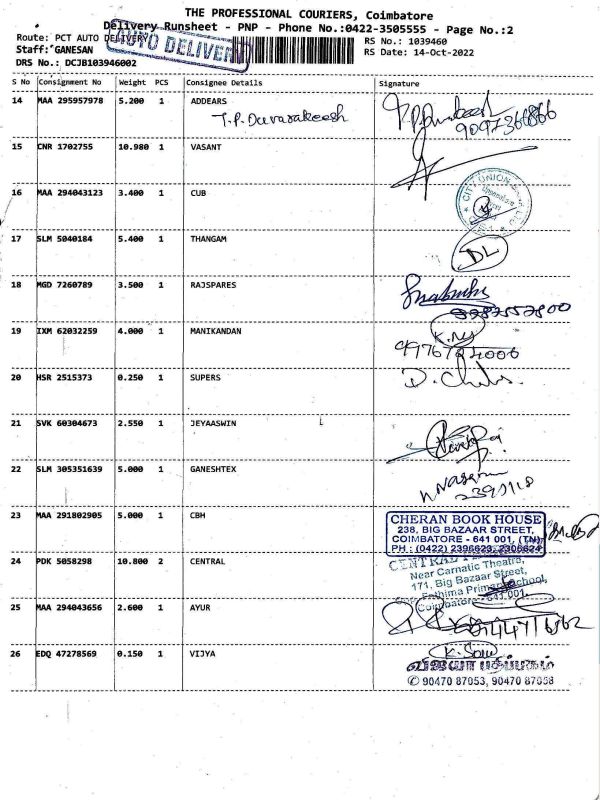 THE PROFESSIONAL COURIERS, Coimbatore
Delivery Runsheet - PNP - Phone No.:0422-3505555 - Page No.:2
Route: PCT AUTO DELIVERY
AUTO DELIVERY
RS No.: 1039460
Staff: GANESAN
RS Date: 14-Oct-2022
DRS No.: DCJB103946002
S No Consignment No Weight PCS Consignee Details Signature
14 MAA 295957978 5.200 1 ADDEARS
T.P. Duvarakeesh
15 CNR 1702755 10.980 1 VASANT
16 MAA 294043123 3.400 1 CUB
CITY UNION
17 SLM 5040184 5.400 1 THANGAM
DL
18 MGD 7260789 3.500 1 RAJSPARES
19 IXM 62032259 4.000 1 MANIKANDAN
20 HSR 2515373 0.250 1 SUPERS
21 SVK 60304673 2.550 1 JEYAASWIN
22 SLM 305351639 5.000 1 GANESHTEX
23 MAA 291802905 5.000 1 CBH
CHERAN BOOK HOUSE
238, BIG BAZAAR STREET,
COIMBATORE - 641 001, (TN)
PH : (0422) 2396623, 2306624
24 PDK 5058298 10.800 2 CENTRAL
CENTRAL
Near Carnatic Theatre,
171, Big Bazaar Street,
Fathima Primary School,
Coimbatore - 641 001.
25 MAA 294043656 2.600 1 AYUR
26 EDQ 47278569 0.150 1 VIJYA
விஜயா பதிப்பகம்
✆ 90470 87053, 90470 87058